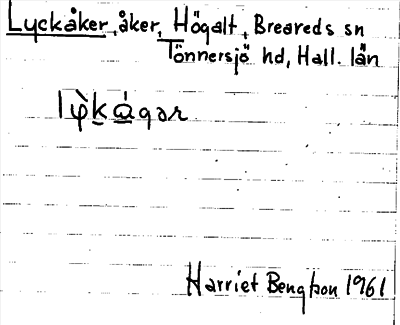 Lyckåker, åker, Högalt, Breareds sn
Tönnersjö hd, Hall. län
Harriet Bengtson 1961